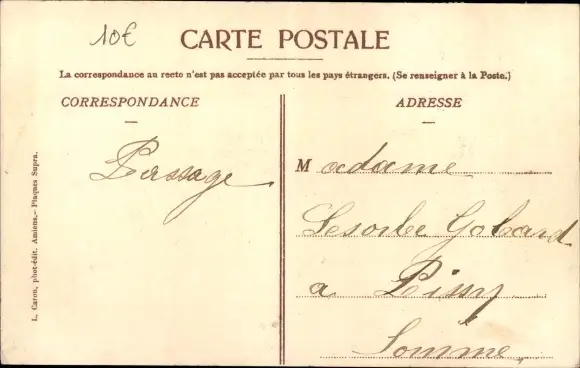 10€
CARTE POSTALE
La correspondance au recto n'est pas acceptée par tous les pays étrangers. (Se renseigner à la Poste.)
CORRESPONDANCE
ADRESSE
Passage
Madame
Lesorbe Gobard
a Pissy
Somme
L. Caron, phot-édit. Amiens.- Plaques Supra.